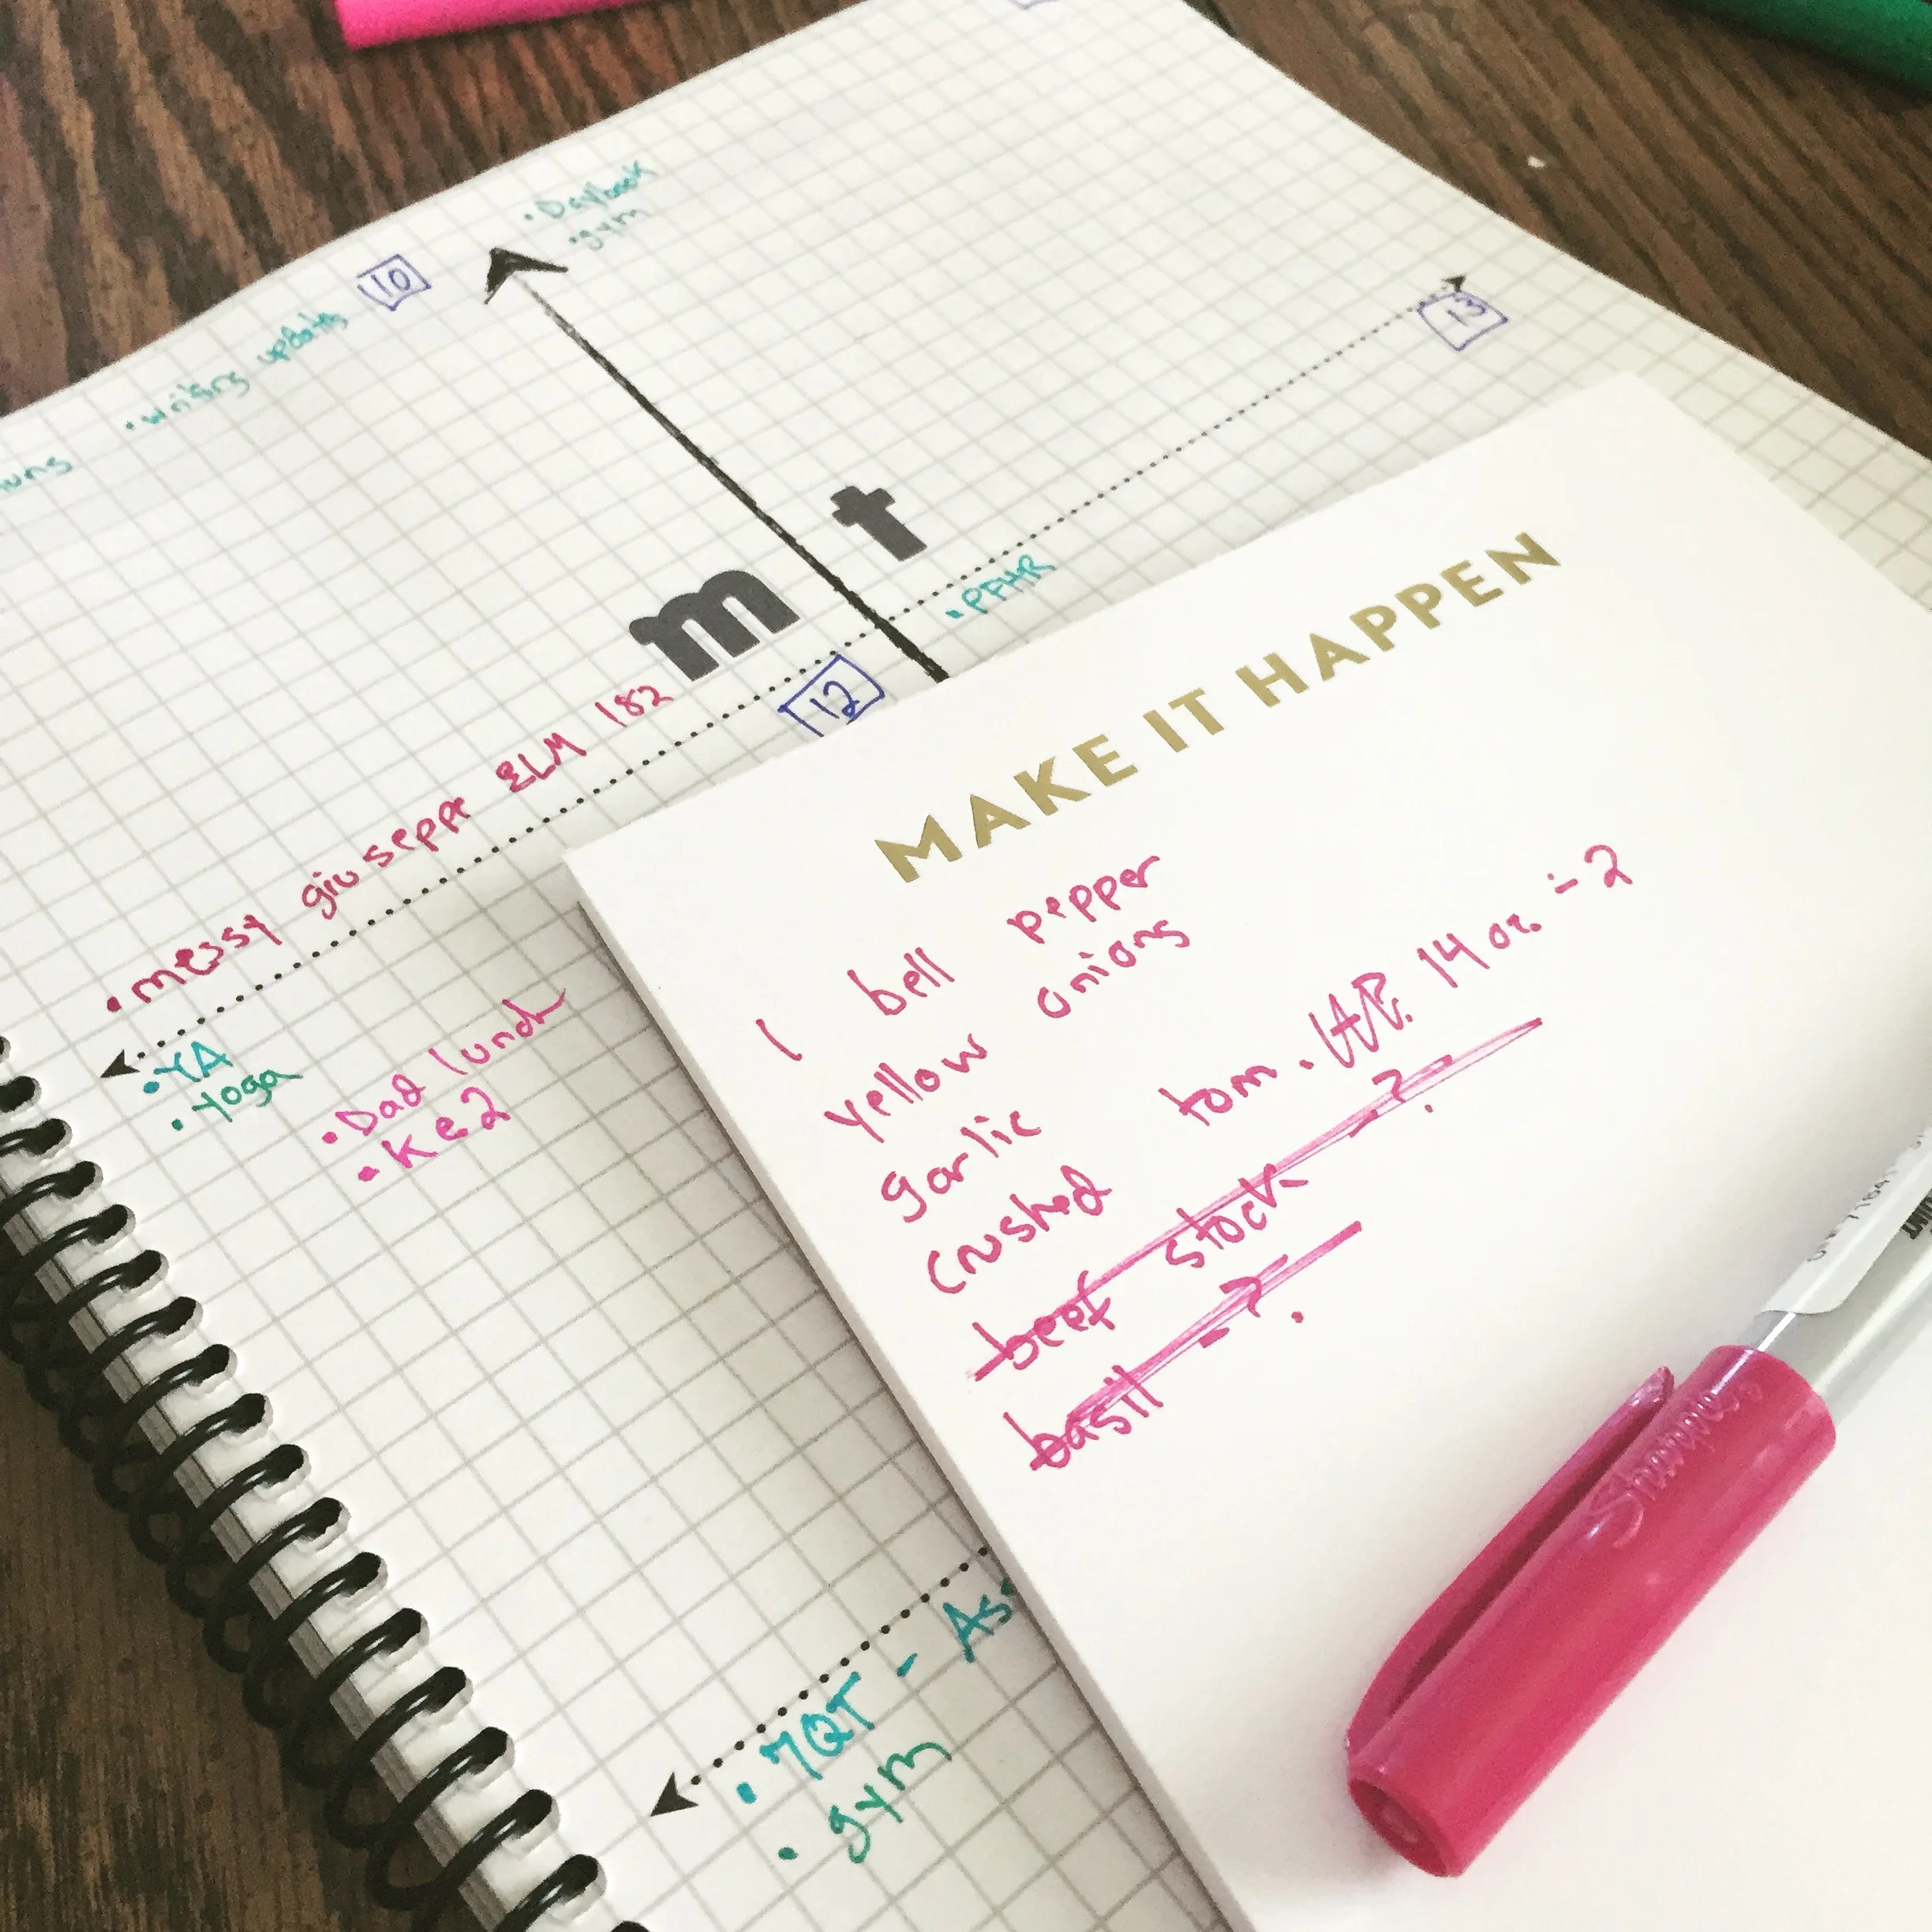 • Daybook
• gym
10
• writing update
13
t
m
• PFHR
12
• messy giuseppe ELM 182
• YA
• Yoga
• Dad lunch
• Ke2
MAKE IT HAPPEN
1 bell pepper
Yellow onions
garlic
crushed tom. 14 oz. - 2
beef stock .?.
basil - ?.
Sharpie
• MQT - As
• gym